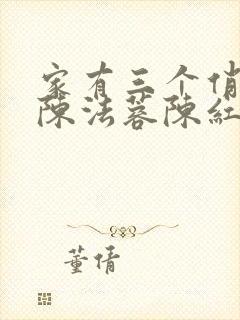 家有三个俏
陈法蓉陈红
董倩